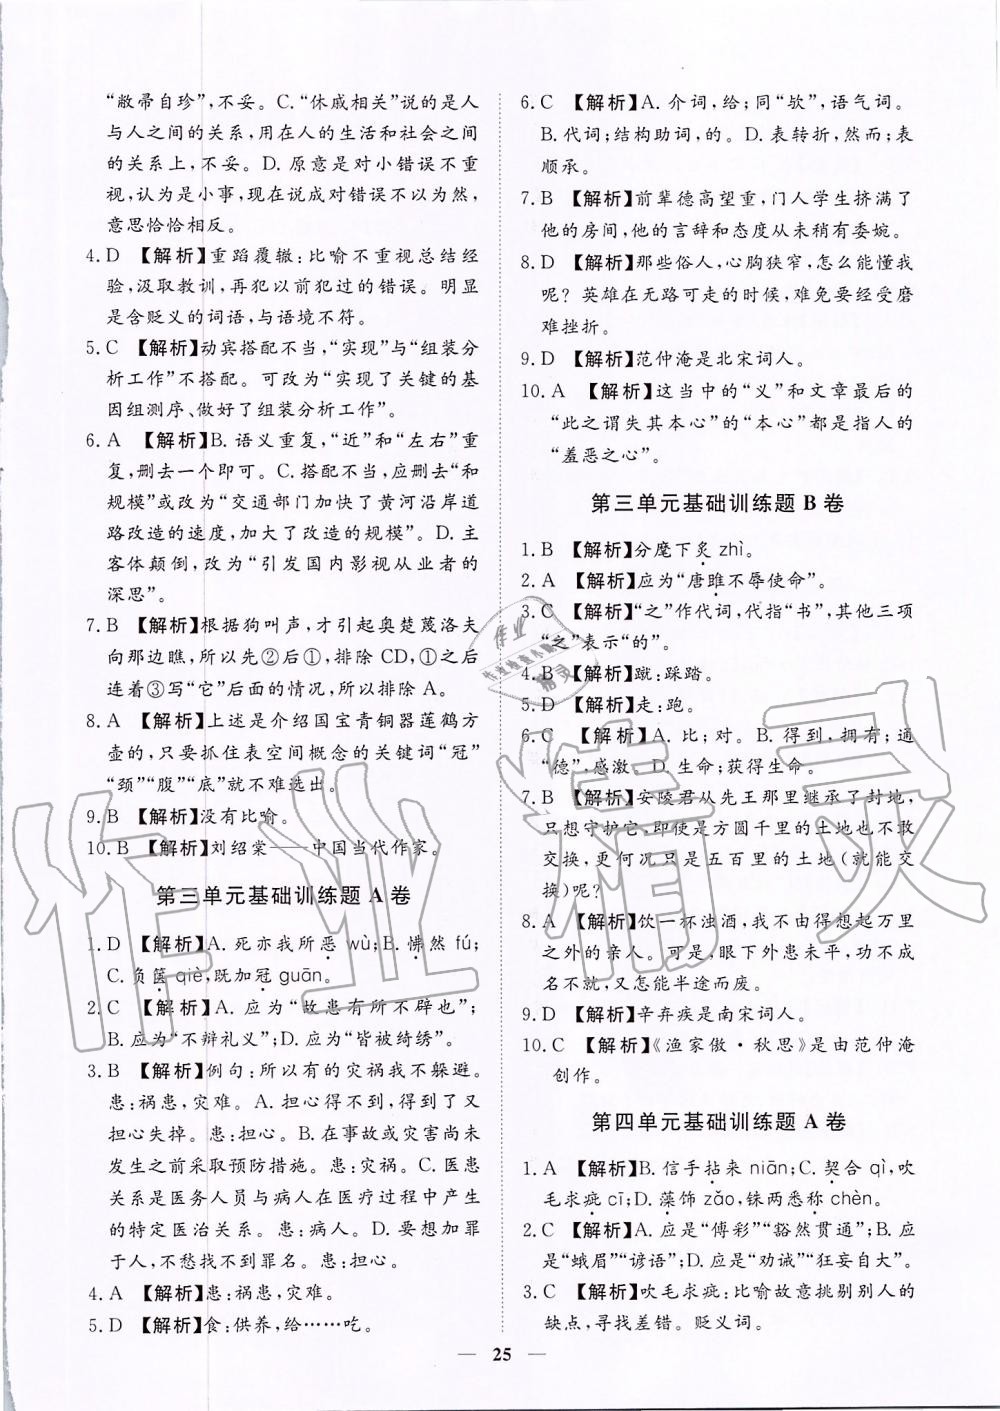 “敝帚自珍”,不妥。C.“休戚相关”说的是人
与人之间的关系,用在人的生活和社会之间
的关系上,不妥。D. 原意是对小错误不重
视,认为是小事,现在说成对错误不以为然,
意思恰恰相反。
4. D 【解析】重蹈覆辙:比喻不重视总结经
验,汲取教训,再犯以前犯过的错误。明显
是含贬义的词语,与语境不符。
5. C 【解析】动宾搭配不当,“实现”与“组装分
析工作”不搭配。可改为“实现了关键的基
因组测序、做好了组装分析工作”。
6. A 【解析】B. 语义重复,“近”和“左右”重
复,删去一个即可。C. 搭配不当,应删去“和
规模”或改为“交通部门加快了黄河沿岸道
路改造的速度,加大了改造的规模”。D. 主
客体颠倒,改为“引发国内影视从业者的
深思”。
7. B 【解析】根据狗叫声,才引起奥楚蔑洛夫
向那边瞧,所以先②后①,排除 CD,①之后
连着③写“它”后面的情况,所以排除 A。
8. A 【解析】上述是介绍国宝青铜器莲鹤方
壶的,只要抓住表空间概念的关键词“冠”
“颈”“腹”“底”就不难选出。
9. B 【解析】没有比喻。
10. B 【解析】刘绍棠——中国当代作家。
第三单元基础训练题 A 卷
1. D 【解析】A. 死亦我所恶 wù;B. 怫然 fú;
C. 负箧 qiè,既加冠 guān。
2. C 【解析】A. 应为“故患有所不辟也”;
B. 应为“不辩礼义”;D. 应为“皆被绮绣”。
3. B 【解析】例句:所以有的灾祸我不躲避。
患:祸患,灾难。A. 担心得不到,得到了又
担心失掉。患:担心。B. 在事故或灾害尚未
发生之前采取预防措施。患:灾祸。C. 医患
关系是医务人员与病人在医疗过程中产生
的特定医治关系。患:病人。D. 要想加罪
于人,不愁找不到罪名。患:担心。
4. A 【解析】患:祸患,灾难。
5. D 【解析】食:供养,给……吃。
6. C 【解析】A. 介词,给;同“欤”,语气词。
B. 代词;结构助词,的。D. 表转折,然而;表
顺承。
7. B 【解析】前辈德高望重,门人学生挤满了
他的房间,他的言辞和态度从未稍有委婉。
8. D 【解析】那些俗人,心胸狭窄,怎么能懂我
呢？英雄在无路可走的时候,难免要经受磨
难挫折。
9. D 【解析】范仲淹是北宋词人。
10. A 【解析】这当中的“义”和文章最后的
“此之谓失其本心”的“本心”都是指人的
“羞恶之心”。
第三单元基础训练题 B 卷
1. B 【解析】分麾下炙 zhì。
2. A 【解析】应为“唐雎不辱使命”。
3. C 【解析】“之”作代词,代指“书”,其他三项
“之”表示“的”。
4. B 【解析】蹴:踩踏。
5. D 【解析】走:跑。
6. C 【解析】A. 比;对。B. 得到,拥有;通
“德”,感激。D. 生命;获得生命。
7. B 【解析】安陵君从先王那里继承了封地,
只想守护它,即使是方圆千里的土地也不敢
交换,更何况只是五百里的土地(就能交
换)呢?
8. A 【解析】饮一杯浊酒,我不由得想起万里
之外的亲人。可是,眼下外患未平,功不成
名不就,又怎能半途而废。
9. D 【解析】辛弃疾是南宋词人。
10. C 【解析】《渔家傲·秋思》是由范仲淹
创作。
第四单元基础训练题 A 卷
1. A 【解析】B. 信手拈来 niān;C. 契合 qì,吹
毛求疵 cī;D. 藻饰 zǎo,铢两悉称 chèn。
2. C 【解析】A. 应是“傅彩”“豁然贯通”;B. 应
是“蛾眉”“谚语”;D. 应是“劝诫”“狂妄自大”。
3. C 【解析】吹毛求疵:比喻故意挑剔别人的
缺点,寻找差错。贬义词。
— 25 —
作业精灵
作业
作业检查小助手
精灵